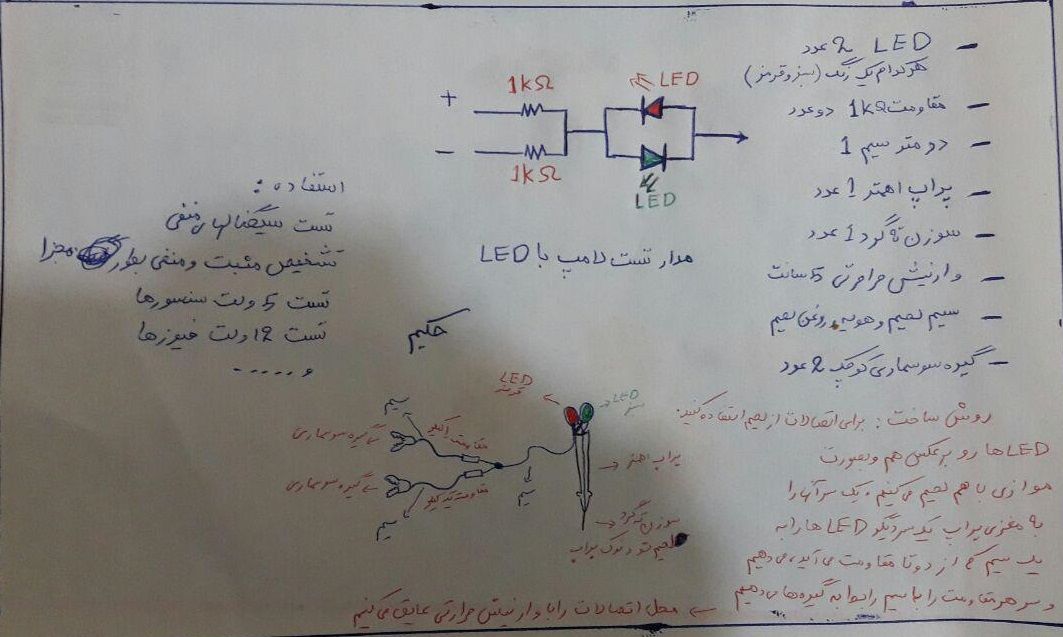 - LED 2 عدد
هرکدام یک رنگ (سبز و قرمز)
- مقاومت 1kΩ دو عدد
- دو متر سیم 1
- پراپ اهمتر 1 عدد
- سوزن ته گرد 1 عدد
- وارنیش حرارتی 5 سانت
- سیم لحیم و هویه و روغن لحیم
- گیره سوسماری کوچک 2 عدد
+
-
1kΩ
1kΩ
LED
LED
مدار تست لامپ با LED
استفاده:
تست سیگنالهای منفی
تشخیص مثبت و منفی بطور مجزا
تست 5 ولت سنسورها
تست 12 ولت فیوزها
و ......
حکیم
LED
قرمز
LED
سبز
سیم
مقاومت 1 کیلو
گیره سوسماری
گیره سوسماری
مقاومت یک کیلو
سیم
سیم
پراپ اهمتر
سوزن ته گرد
لحیم شده نوک پراپ
روش ساخت: برای اتصالات از لحیم استفاده کنید.
LED ها رو برعکس هم و بصورت
موازی با هم لحیم می کنیم و یک سر آنها را
به مغزی پراپ یک سر دیگر LED ها را به
یک سیم که از دو تا مقاومت می آید، می دهیم
و سر هر مقاومت را با سیم رابط به گیره ها می دهیم
محل اتصالات را با وارنیش حرارتی عایق می کنیم